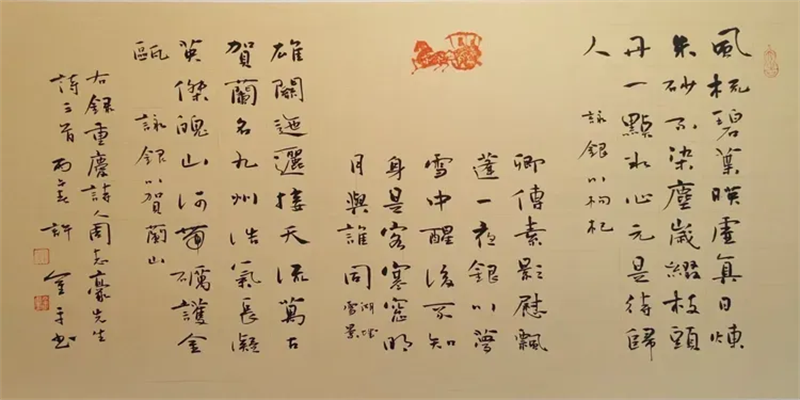 風梳碧葉暎虛真日煉
朱砂不染塵歲綴枝頭
丹一點冰心元是待歸
人 詠銀川枸杞
卿傳素影慰飄
蓬一夜銀川夢
雪中醒後不知
身是客寒窓明
月與誰同 湖城
雪景
雄關迤邐接天流萬古
賀蘭名九州浩氣長凝
英傑魄山河帶礪護金
甌 詠銀川賀蘭山
右錄重慶詩人周志豪先生
詩三首 丙 許金平書